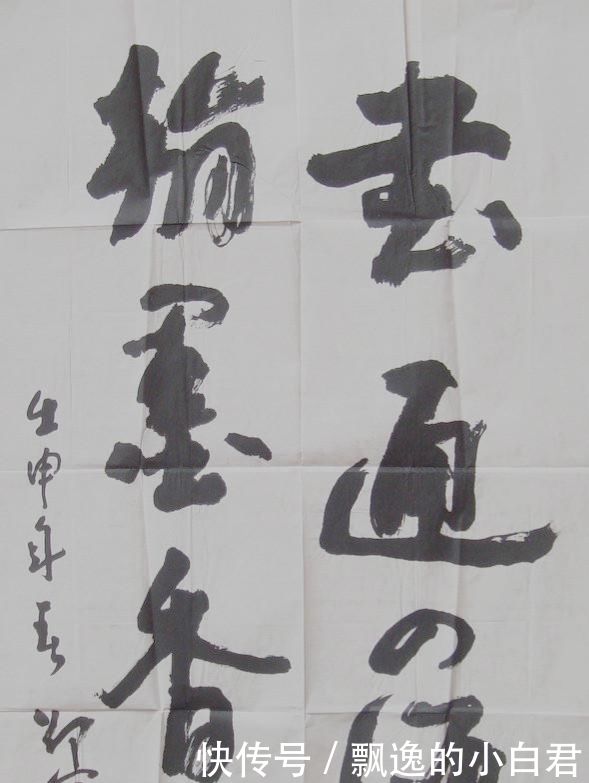 書通四
翰墨香
壬申年春
快传号 / 飘逸的小白君